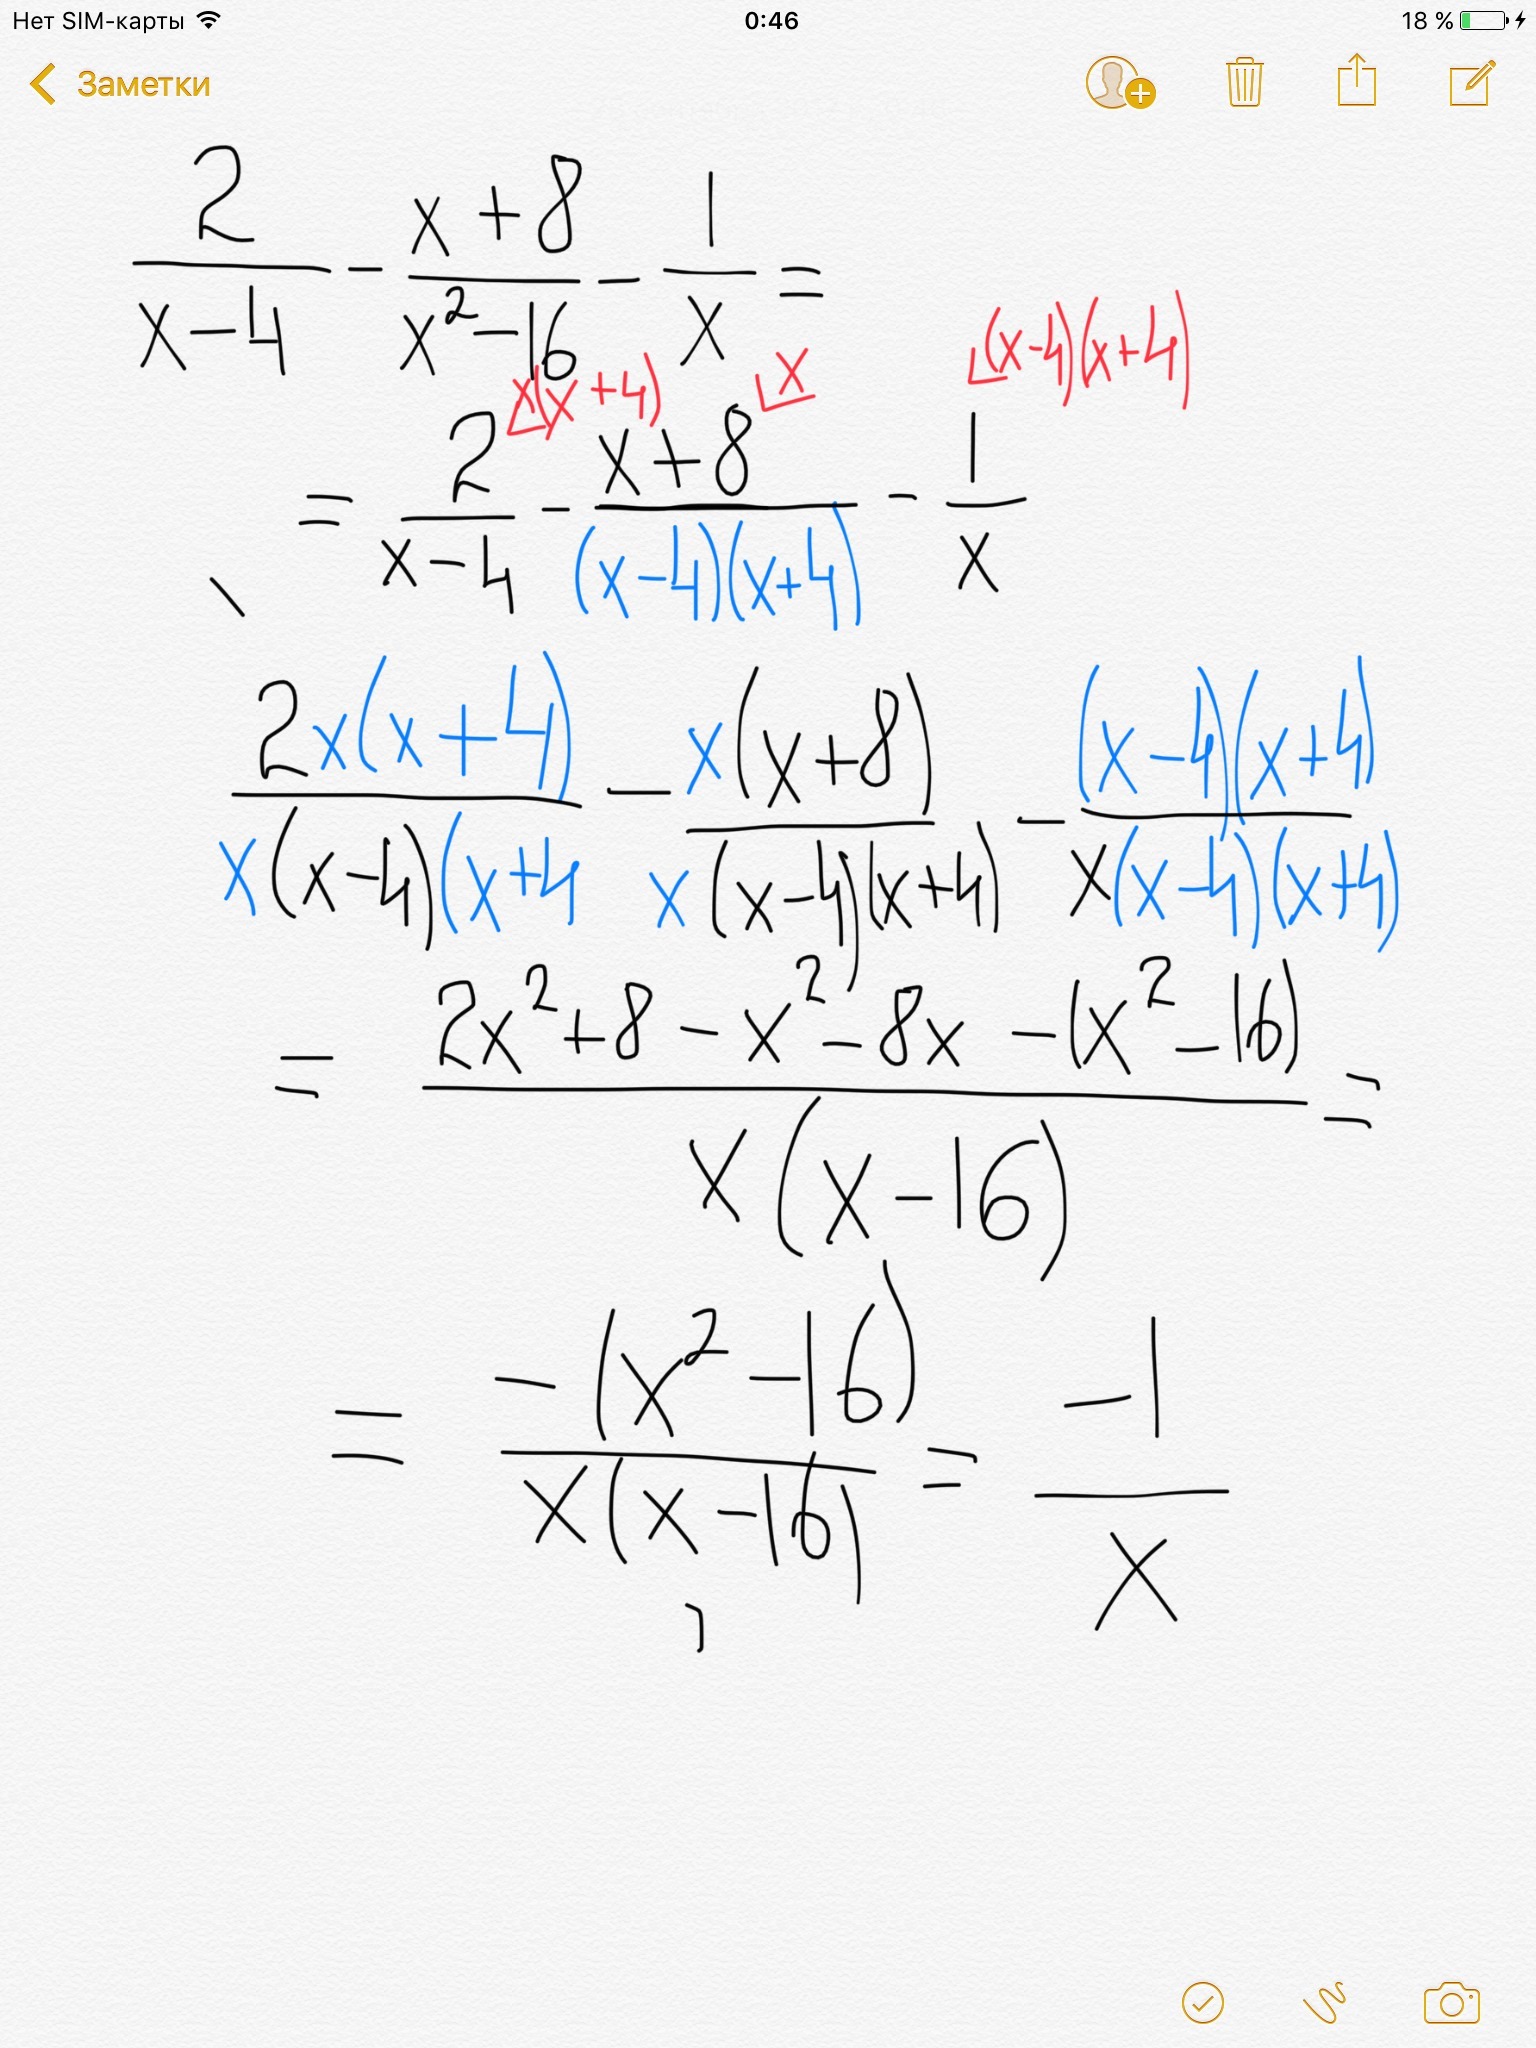 Нет SIM-карты 0:46 18 %
Заметки
2/(x-4) - (x+8)/(x²-16) - 1/x =
x(x+4) x (x-4)(x+4)
= 2/(x-4) - (x+8)/((x-4)(x+4)) - 1/x
2x(x+4)/(x(x-4)(x+4) - x(x+8)/(x(x-4)(x+4)) - (x-4)(x+4)/(x(x-4)(x+4))
= (2x²+8-x²-8x-(x²-16))/(x(x-16)) =
= -(x²-16)/(x(x-16)) = -1/x